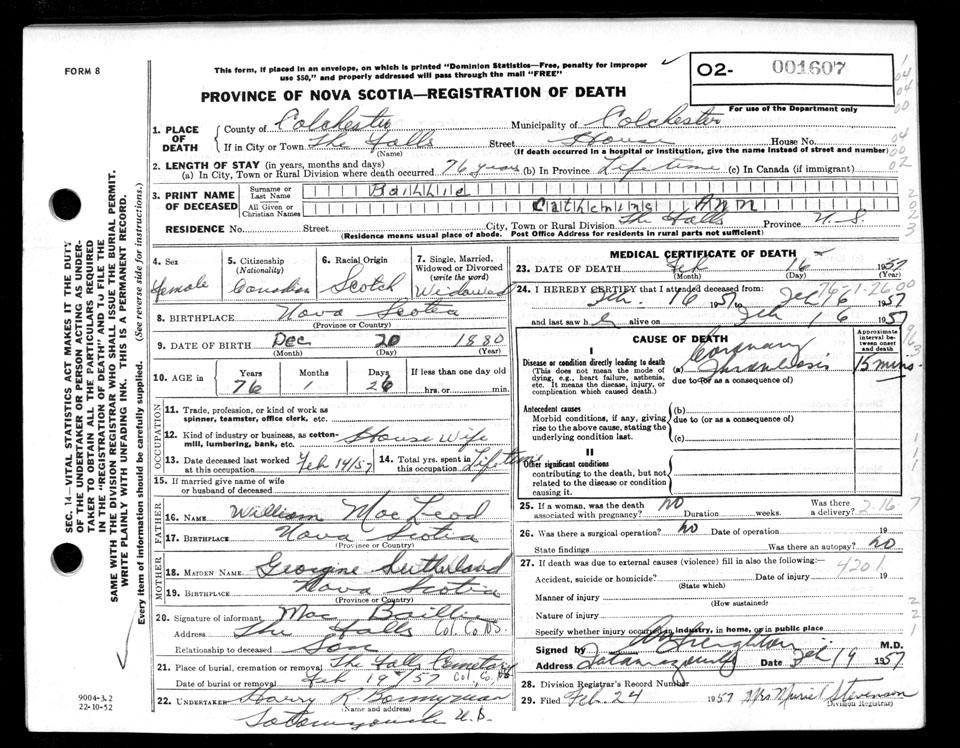 FORM 8
This form, if placed in an envelope, on which is printed "Dominion Statistics—Free, penalty for improper
use $50," and properly addressed will pass through the mail "FREE"
O2- 001607
For use of the Department only
PROVINCE OF NOVA SCOTIA—REGISTRATION OF DEATH
1. PLACE OF DEATH
County of Colchester Municipality of Colchester
If in City or Town The Falls Street House No.
(Name) (If death occurred in a hospital or institution, give the name instead of street and number)
2. LENGTH OF STAY (in years, months and days)
(a) In City, Town or Rural Division where death occurred 76 years (b) In Province Lifetime (c) In Canada (if immigrant)
3. PRINT NAME OF DECEASED
Surname or Last Name Baillie
All Given or Christian Names Ann
RESIDENCE No. Street City, Town or Rural Division The Falls Province N.S.
(Residence means usual place of abode. Post Office Address for residents in rural parts not sufficient)
4. Sex
female
5. Citizenship
(Nationality)
Canadian
6. Racial Origin
Scotch
7. Single, Married,
Widowed or Divorced
(write the word)
Widowed
8. BIRTHPLACE Nova Scotia
(Province or Country)
9. DATE OF BIRTH Dec 20 1880
(Month) (Day) (Year)
10. AGE in Years Months Days If less than one day old
76 1 26 hrs. or min.
OCCUPATION
11. Trade, profession, or kind of work as
spinner, teamster, office clerk, etc.
12. Kind of industry or business, as cotton-
mill, lumbering, bank, etc. House Wife
13. Date deceased last worked
at this occupation Feb 14/57
14. Total yrs. spent in
this occupation Lifetime
15. If married give name of wife
or husband of deceased
FATHER
16. NAME William MacLeod
17. BIRTHPLACE Nova Scotia
(Province or Country)
MOTHER
18. MAIDEN NAME Georgine Sutherland
19. BIRTHPLACE Nova Scotia
(Province or Country)
20. Signature of informant Mac Baillie
Address The Falls Col. Co. N.S.
Relationship to deceased Son
21. Place of burial, cremation or removal The Falls Cemetary
Date of burial or removal Feb 19/57 Col. Co. N.S.
22. UNDERTAKER Harry R
(Name and address)
N.S.
MEDICAL CERTIFICATE OF DEATH
23. DATE OF DEATH Feb 16 1957
(Month) (Day) (Year)
24. I HEREBY CERTIFY that I attended deceased from:
76-1-26 00
Feb. 16 1957 to Feb 16 1957
and last saw h er alive on Feb 16 1957
CAUSE OF DEATH
Approximate
interval be-
tween onset
and death
I
Disease or condition directly leading to death
(This does not mean the mode of
dying, e.g., heart failure, asthenia,
etc. It means the disease, injury, or
complication which caused death.)
(a) Coronary
Thrombosis
15 mins.
due to (or as a consequence of)
Antecedent causes
Morbid conditions, if any, giving
rise to the above cause, stating the
underlying condition last.
(b)
due to (or as a consequence of)
(c)
II
Other significant conditions
contributing to the death, but not
related to the disease or condition
causing it.
25. If a woman, was the death
associated with pregnancy? NO Duration weeks. Was there
a delivery?
2.16
26. Was there a surgical operation? No Date of operation 19
State findings Was there an autopsy? NO
27. If death was due to external causes (violence) fill in also the following:
4201
Accident, suicide or homicide? Date of injury 19
(State which)
Manner of injury
(How sustained)
Nature of injury
Specify whether injury occurred in industry, in home, or in public place
Signed by Creighton M.D.
Address Date Feb 19 1957
28. Division Registrar's Record Number
29. Filed Feb. 24 1957 Mrs Muriel Stevenson
Division Registrar
SEC. 14—VITAL STATISTICS ACT MAKES IT THE DUTY
OF THE UNDERTAKER OR PERSON ACTING AS UNDER-
TAKER TO OBTAIN ALL THE PARTICULARS REQUIRED
IN THE "REGISTRATION OF DEATH" AND TO FILE THE
SAME WITH THE DIVISION REGISTRAR WHO SHALL ISSUE THE BURIAL PERMIT.
WRITE PLAINLY WITH UNFADING INK. THIS IS A PERMANENT RECORD.
Every item of information should be carefully supplied. (See reverse side for instructions.)
9004-3.2
22-10-52